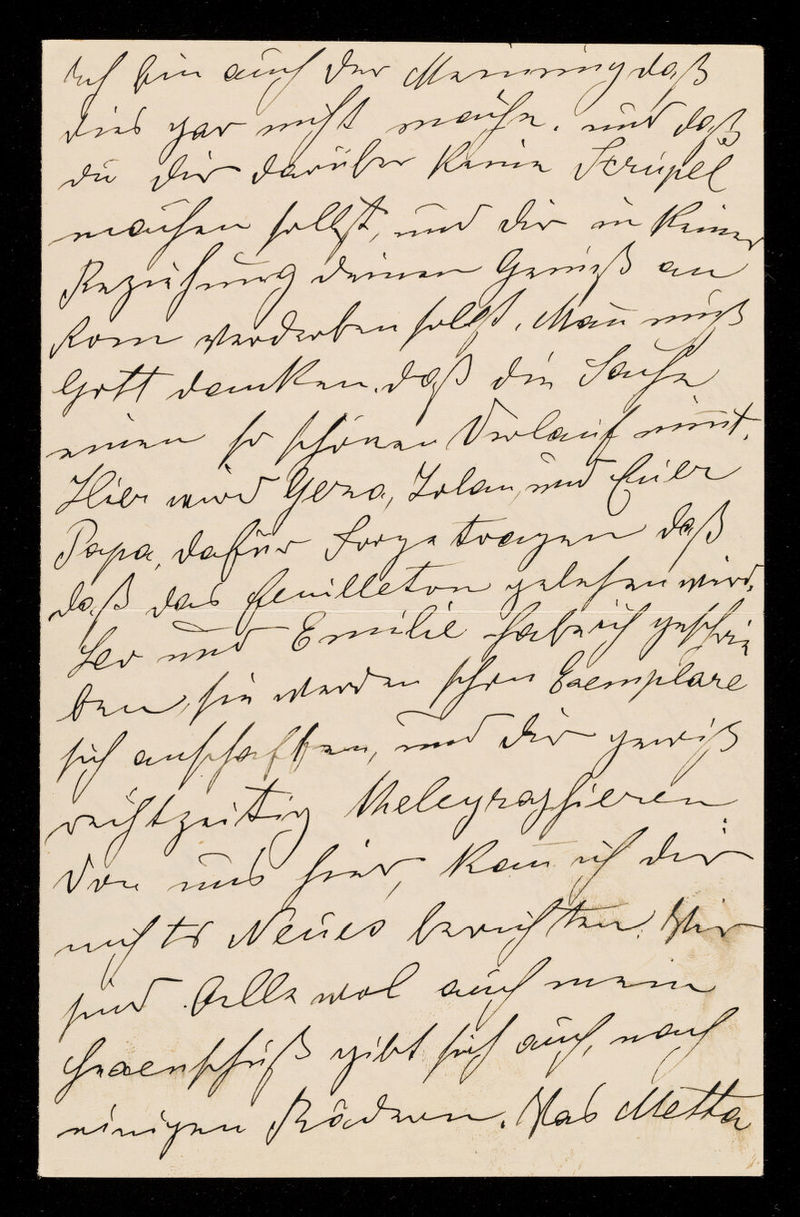 Ich bin auch der Meinung daß
dies gar nicht mache. und daß
du dir darüber keine Scrupel
machen sollst, und dir in keiner
Beziehung deinen Genuß an
Rom verderben sollst. Man muß
Gott danken, daß die Sache
einen so schönen Verlauf nimt.
Hier wird Geza, Jolan, und Euer
Papa, dafür Sorge tragen daß
daß das feuilleton gelesen wird.
Leo und Emilie habe ich geschrie
ben, sie werden schon Exemplare
sich anschaffen, und dir gewiß
rechtzeitig thelegraphieren.
Von uns hier, kan ich dir
nichts Neues berichten. Wir
sind Alle wol auch mein
Hexenschuß gibt sich auch, nach
einigen Bädern. Was Metta